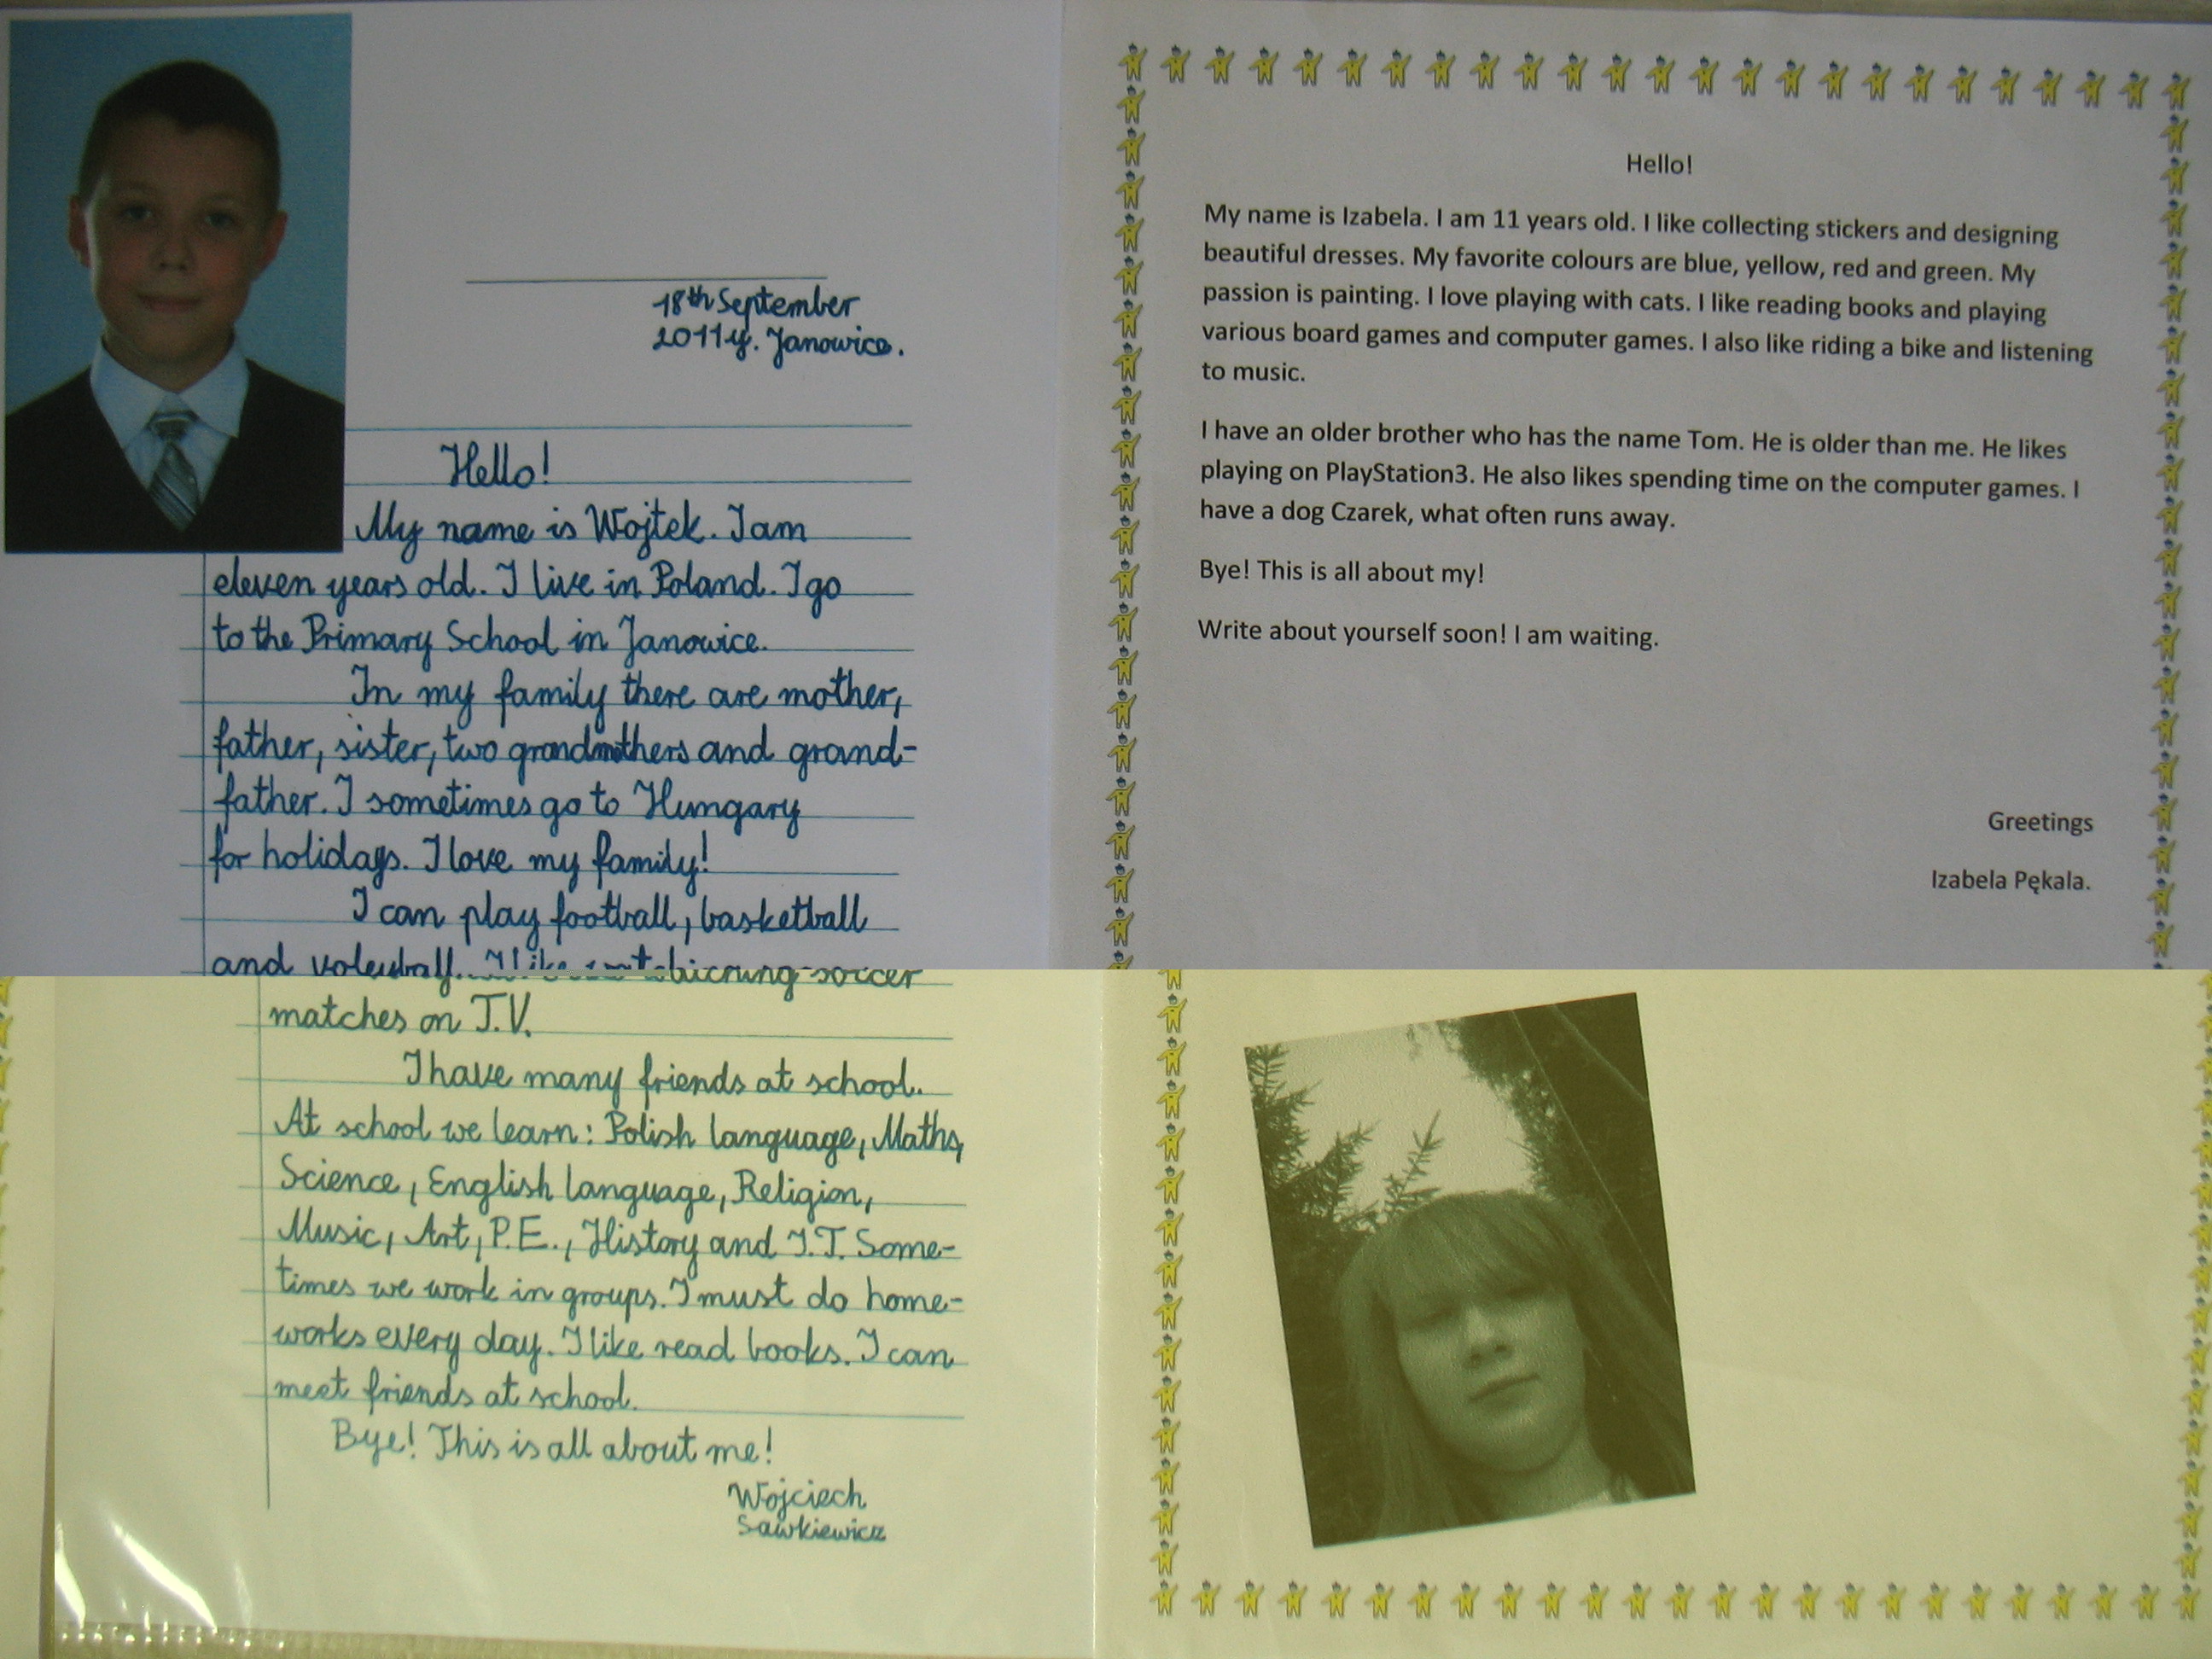 18th September
2011y. Janowice.
Hello!
My name is Wojtek. I am
eleven years old. I live in Poland. I go
to the Primary School in Janowice.
In my family there are mother,
father, sister, two grandmothers and grand-
father. I sometimes go to Hungary
for holidays. I love my family!
I can play football, basketball
and I like soccer
matches on T.V.
I have many friends at school.
At school we learn: Polish language, Maths,
Science, English language, Religion,
Music, Art, P.E., History and I.T. Some-
times we work in groups. I must do home-
works every day. I like read books. I can
meet friends at school.
Bye! This is all about me!
Wojciech
Sawkiewicz
Hello!
My name is Izabela. I am 11 years old. I like collecting stickers and designing
beautiful dresses. My favorite colours are blue, yellow, red and green. My
passion is painting. I love playing with cats. I like reading books and playing
various board games and computer games. I also like riding a bike and listening
to music.
I have an older brother who has the name Tom. He is older than me. He likes
playing on PlayStation3. He also likes spending time on the computer games. I
have a dog Czarek, what often runs away.
Bye! This is all about my!
Write about yourself soon! I am waiting.
Greetings
Izabela Pękala.